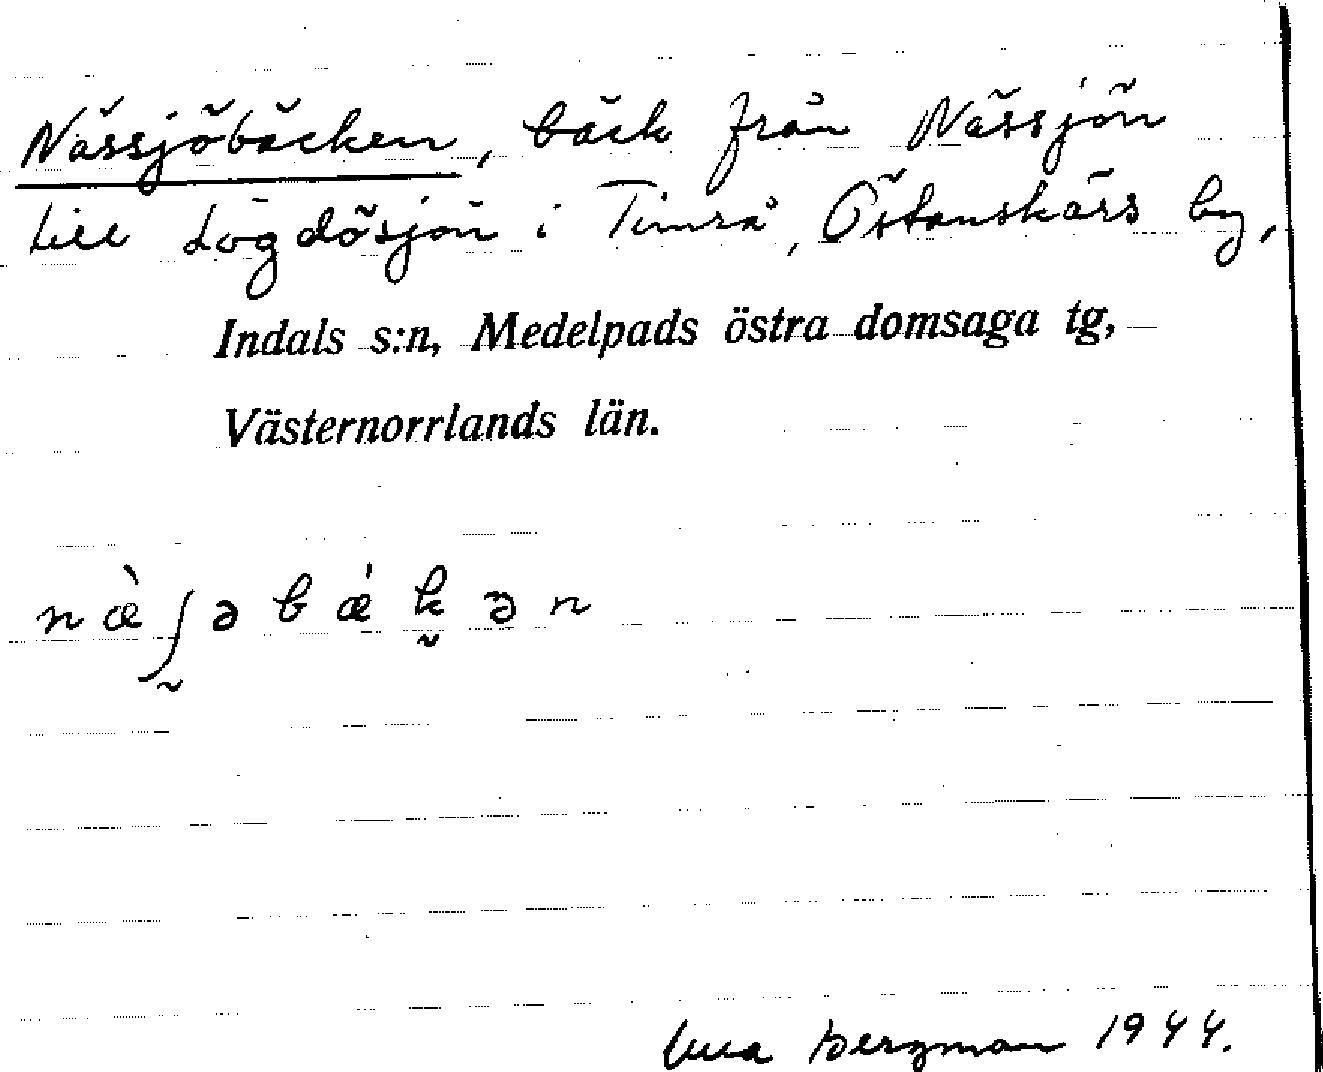 Nässjöbäcken, bäck från Nässjön
till Lögdösjön i Timrå, Östanskärs by,
Indals s:n, Medelpads östra domsaga tg,
Västernorrlands län.
næ̀ʃ̰əbǽk̰ən
Bergman 1944.